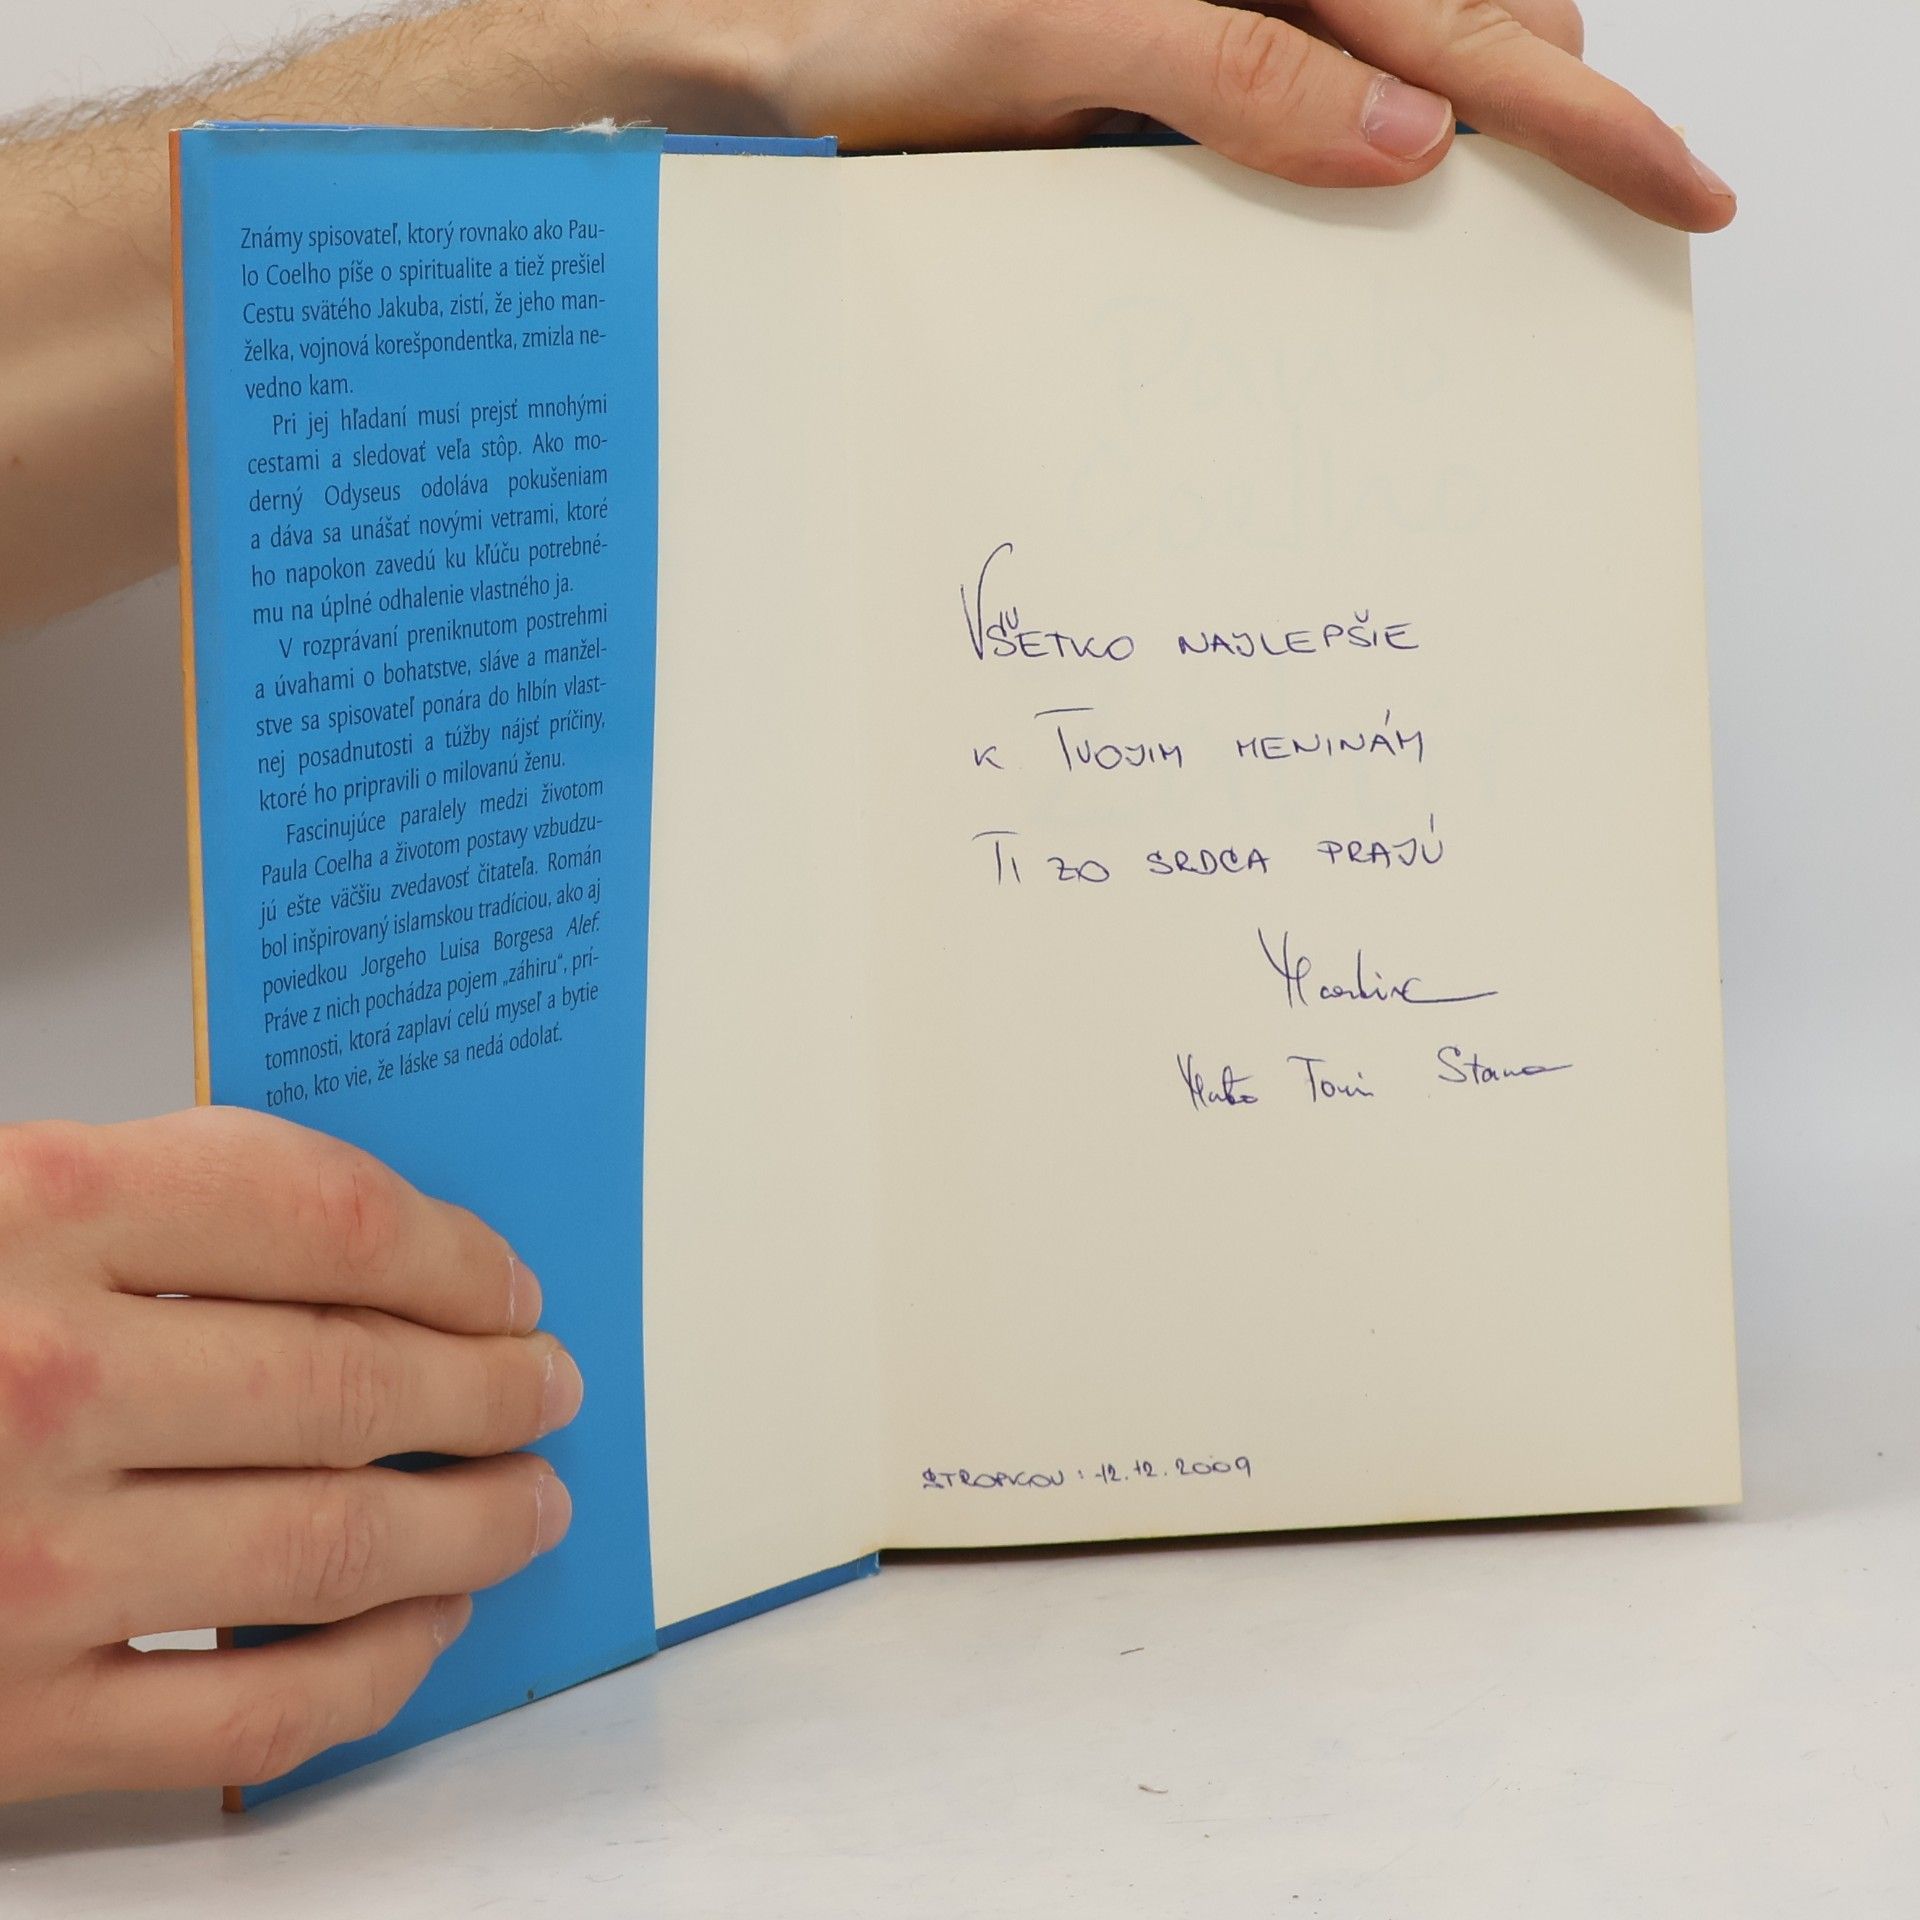 Známy spisovateľ, ktorý rovnako ako Pau-
lo Coelho píše o spiritualite a tiež prešiel
Cestu svätého Jakuba, zistí, že jeho man-
želka, vojnová korešpondentka, zmizla ne-
vedno kam.
Pri jej hľadaní musí prejsť mnohými
cestami a sledovať veľa stôp. Ako mo-
derný Odyseus odoláva pokušeniam
a dáva sa unášať novými vetrami, ktoré
ho napokon zavedú ku kľúču potrebné-
mu na úplné odhalenie vlastného ja.
V rozprávaní preniknutom postrehmi
a úvahami o bohatstve, sláve a manžel-
stve sa spisovateľ ponára do hlbín vlast-
nej posadnutosti a túžby nájsť príčiny,
ktoré ho pripravili o milovanú ženu.
Fascinujúce paralely medzi životom
Paula Coelha a životom postavy vzbudzu-
jú ešte väčšiu zvedavosť čitateľa. Román
bol inšpirovaný islamskou tradíciou, ako aj
poviedkou Jorgeho Luisa Borgesa Alef.
Práve z nich pochádza pojem „záhiru“, prí-
tomnosti, ktorá zaplaví celú myseľ a bytie
toho, kto vie, že láske sa nedá odolať.
VŠETKO NAJLEPŠIE
K TVOJIM MENINÁM
TI ZO SRDCA PRAJÚ
Toni
STROPKOV: 12.12.2009